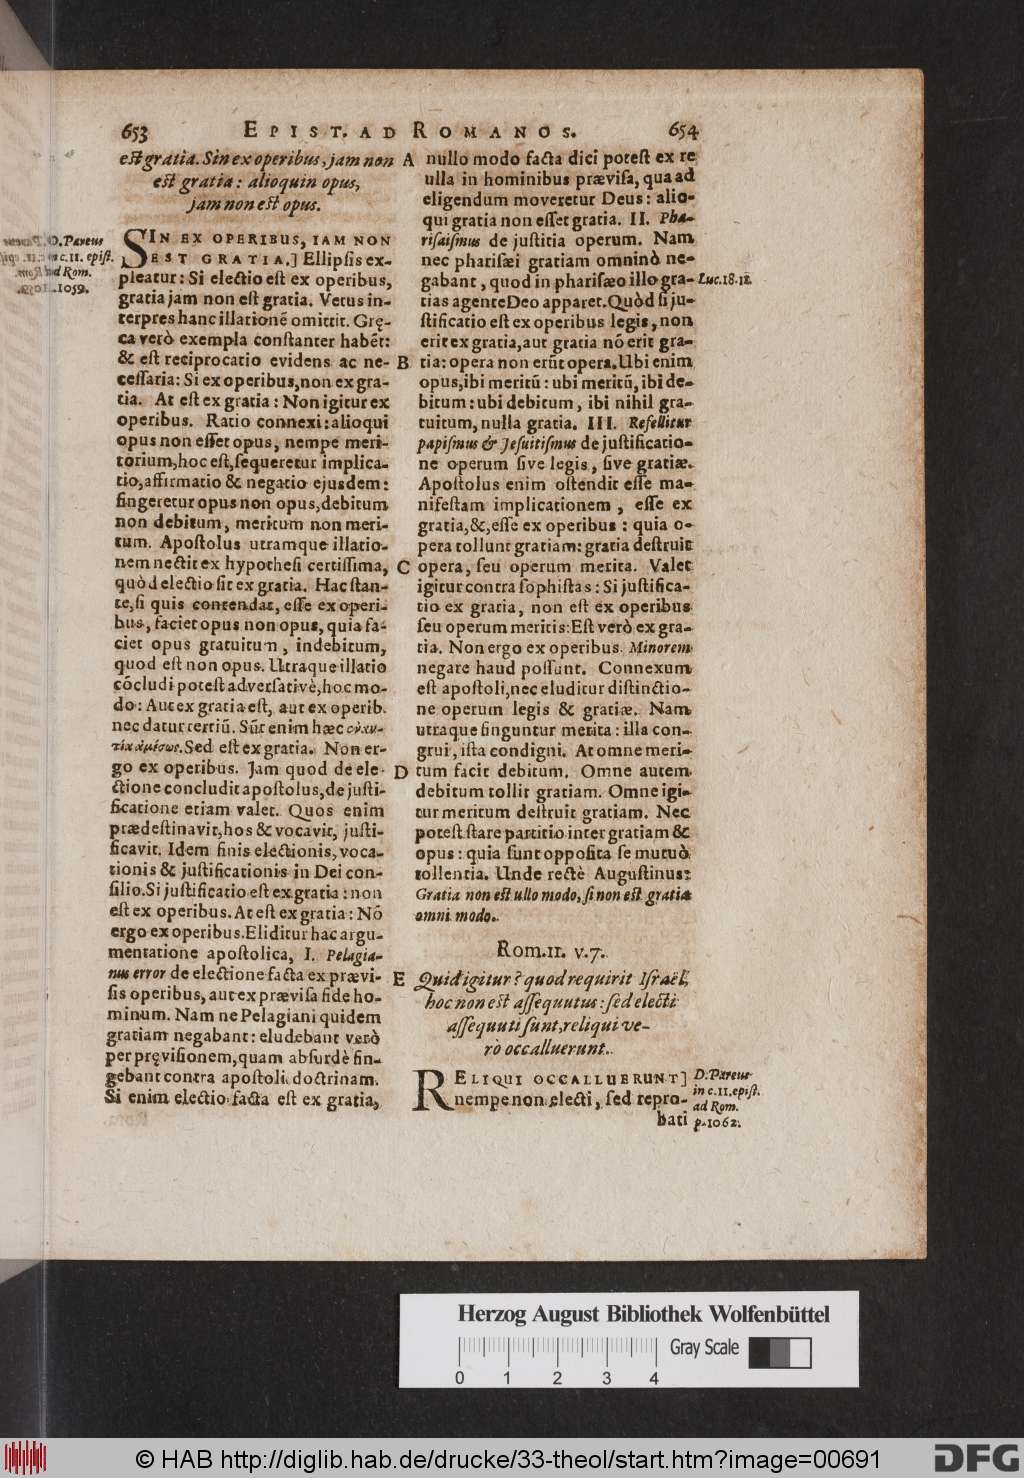 653 EPIST. AD ROMANOS. 654
est gratia. Sin ex operibus, jam non
est gratia: alioquin opus,
jam non est opus.
D. Pareus
in c. 11. epist.
ad Rom.
p. 1059.
SIN EX OPERIBUS, IAM NON
EST GRATIA.] Ellipsis ex-
pleatur: Si electio est ex operibus,
gratia jam non est gratia. Vetus in-
terpres hanc illationē omittit. Gręca
ca verò exempla constanter habēt:
& est reciprocatio evidens ac ne-
cessaria: Si ex operibus, non ex gra-
tia. At est ex gratia: Non igitur ex
operibus. Ratio connexi: alioqui
opus non esset opus, nempe meri-
torium, hoc est, sequeretur implica-
tio, affirmatio & negatio ejusdem:
fingeretur opus non opus, debitum
non debitum, meritum non meri-
tum. Apostolus utramque illatio-
nem nectit ex hypothesi certissima,
quòd electio sit ex gratia. Hac stan-
te, si quis contendat, esse ex operi-
bus, faciet opus non opus, quia fa-
ciet opus gratuitum, indebitum,
quod est non opus. Utraque illatio
cōcludi potest adversativè, hoc mo-
do: Aut ex gratia est, aut ex operib.
nec datur tertiū. Sūt enim hæc ἐναν-
τία ἀμέσως. Sed est ex gratia. Non er-
go ex operibus. Jam quod de ele-
ctione concludit apostolus, de justi-
ficatione etiam valet. Quos enim
prædestinavit, hos & vocavit, justi-
ficavit. Idem finis electionis, voca-
tionis & justificationis in Dei con-
silio. Si justificatio est ex gratia: non
est ex operibus. At est ex gratia: Nō
ergo ex operibus. Eliditur hac argu-
mentatione apostolica, I. Pelagia-
nus error de electione facta ex prævi-
sis operibus, aut ex prævisa fide ho-
minum. Nam ne Pelagiani quidem
gratiam negabant: eludebant verò
per prævisionem, quam absurdè fin-
gebant contra apostoli doctrinam.
Si enim electio facta est ex gratia,
A
B
C
D
E
nullo modo facta dici potest ex re
ulla in hominibus prævisa, qua ad
eligendum moveretur Deus: alio-
qui gratia non esset gratia. II. Pha-
risaismus de justitia operum. Nam
nec pharisæi gratiam omninò ne-
gabant, quod in pharisæo illo gra-
tias agente Deo apparet. Quòd si ju-
stificatio est ex operibus legis, non
erit ex gratia, aut gratia nō erit gra-
tia: opera non erūt opera. Ubi enim
opus, ibi meritū: ubi meritū, ibi de-
bitum: ubi debitum, ibi nihil gra-
tuitum, nulla gratia. III. Refellitur
papismus & Jesuitismus de justificatio-
ne operum sive legis, sive gratiæ.
Apostolus enim ostendit esse ma-
nifestam implicationem, esse ex
gratia, &, esse ex operibus: quia o-
pera tollunt gratiam: gratia destruit
opera, seu operum merita. Valet
igitur contra sophistas: Si justifica-
tio ex gratia, non est ex operibus
seu operum meritis: Est verò ex gra-
tia. Non ergo ex operibus. Minorem
negare haud possunt. Connexum
est apostoli, nec eluditur distinctio-
ne operum legis & gratiæ. Nam
utraque finguntur merita: illa con-
grui, ista condigni. At omne meri-
tum facit debitum. Omne autem
debitum tollit gratiam. Omne igi-
tur meritum destruit gratiam. Nec
potest stare partitio inter gratiam &
opus: quia sunt opposita se mutuò
tollentia. Unde rectè Augustinus:
Gratia non est ullo modo, si non est gratia
omni modo.
Luc. 18. 12.
Rom. 11. v. 7.
Quid igitur? quod requirit Israël,
hoc non est assequutus: sed electi
assequuti sunt, reliqui ve-
rò occalluerunt.
RELIQUI OCCALLUERUNT]
nempe non electi, sed repro-
bati
D. Pareus
in c. 11. epist.
ad Rom.
p. 1062.
Herzog August Bibliothek Wolfenbüttel
Gray Scale
0 1 2 3 4
© HAB http://diglib.hab.de/drucke/33-theol/start.htm?image=00691
DFG